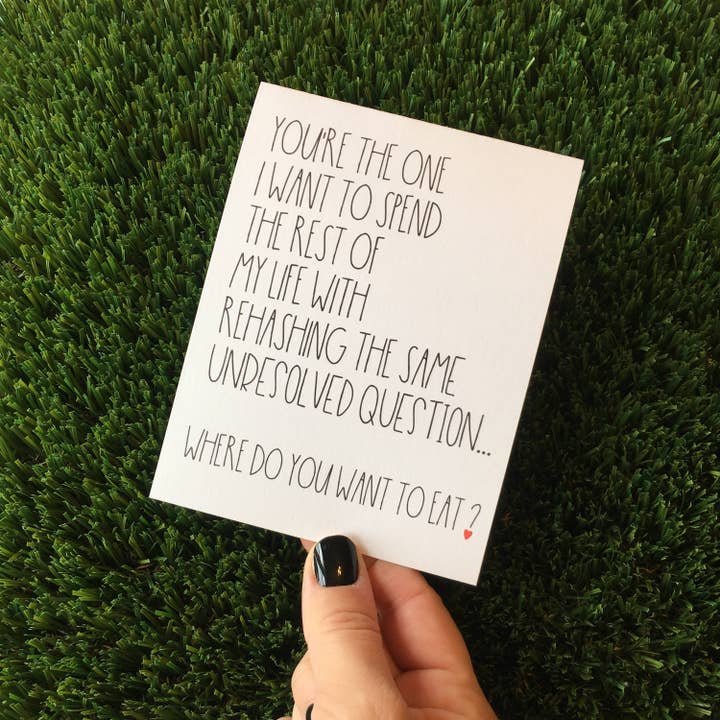 YOU'RE THE ONE
I WANT TO SPEND
THE REST OF
MY LIFE WITH
REHASHING THE SAME
UNRESOLVED QUESTION...
WHERE DO YOU WANT TO EAT?